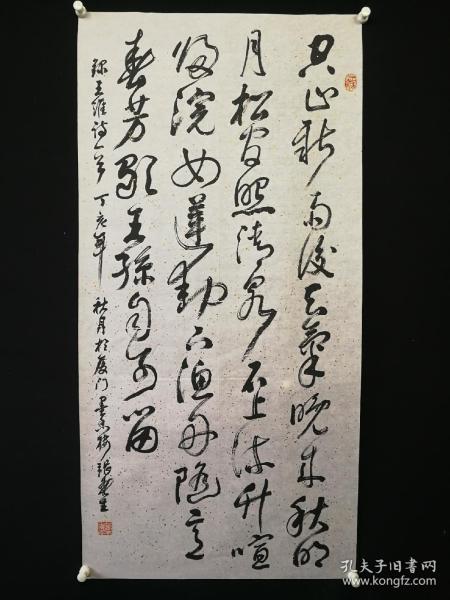 空山新雨後天氣晚来秋明
月松间照清泉石上流竹喧
歸浣女蓮動下渔舟隨意
春芳歇王孫自可留
錄王維诗一首 丁亥年 秋月於厦门
孔夫子旧书网
www.kongfz.com